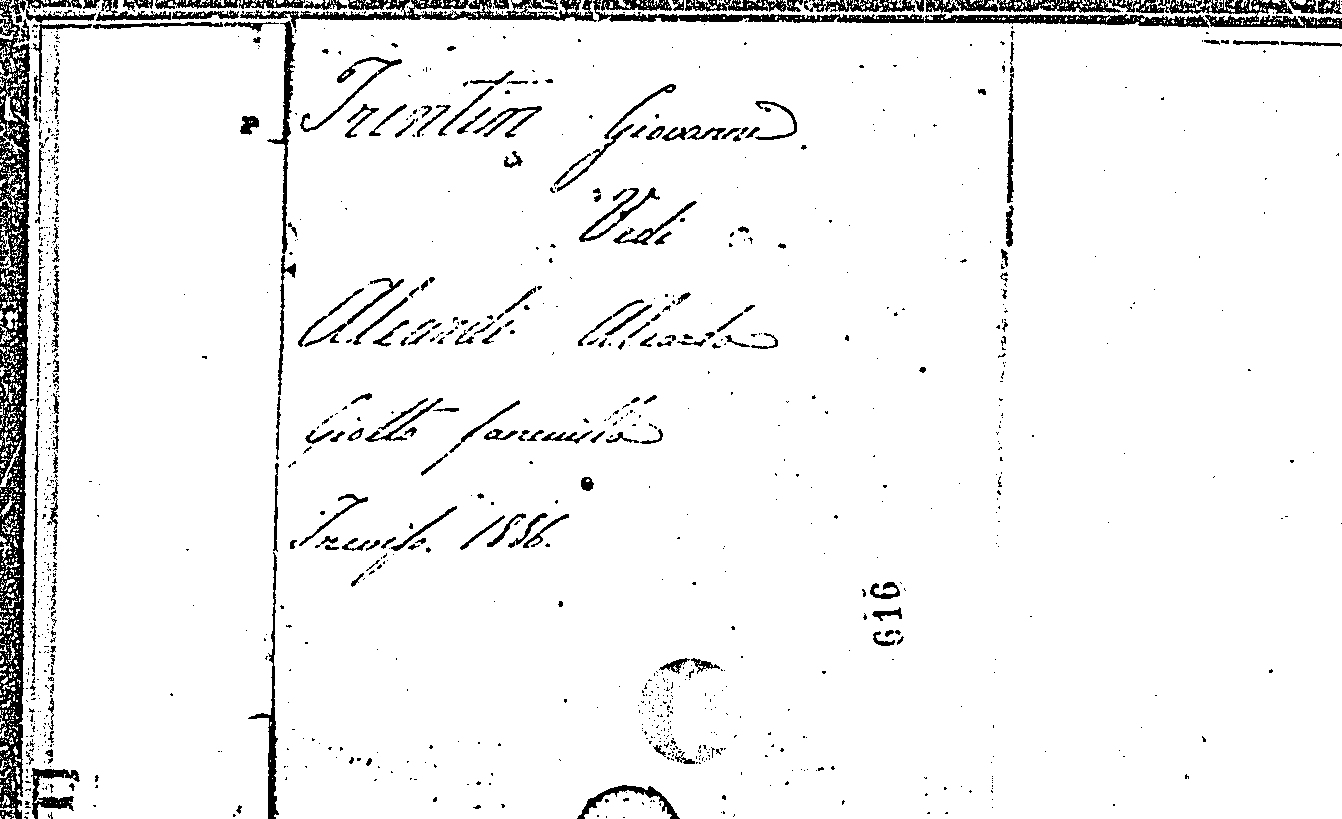 Trentin Giovanni.
Vedi
Aleardi Aleardo
Giotto fanciullo
Treviso. 1886.
616